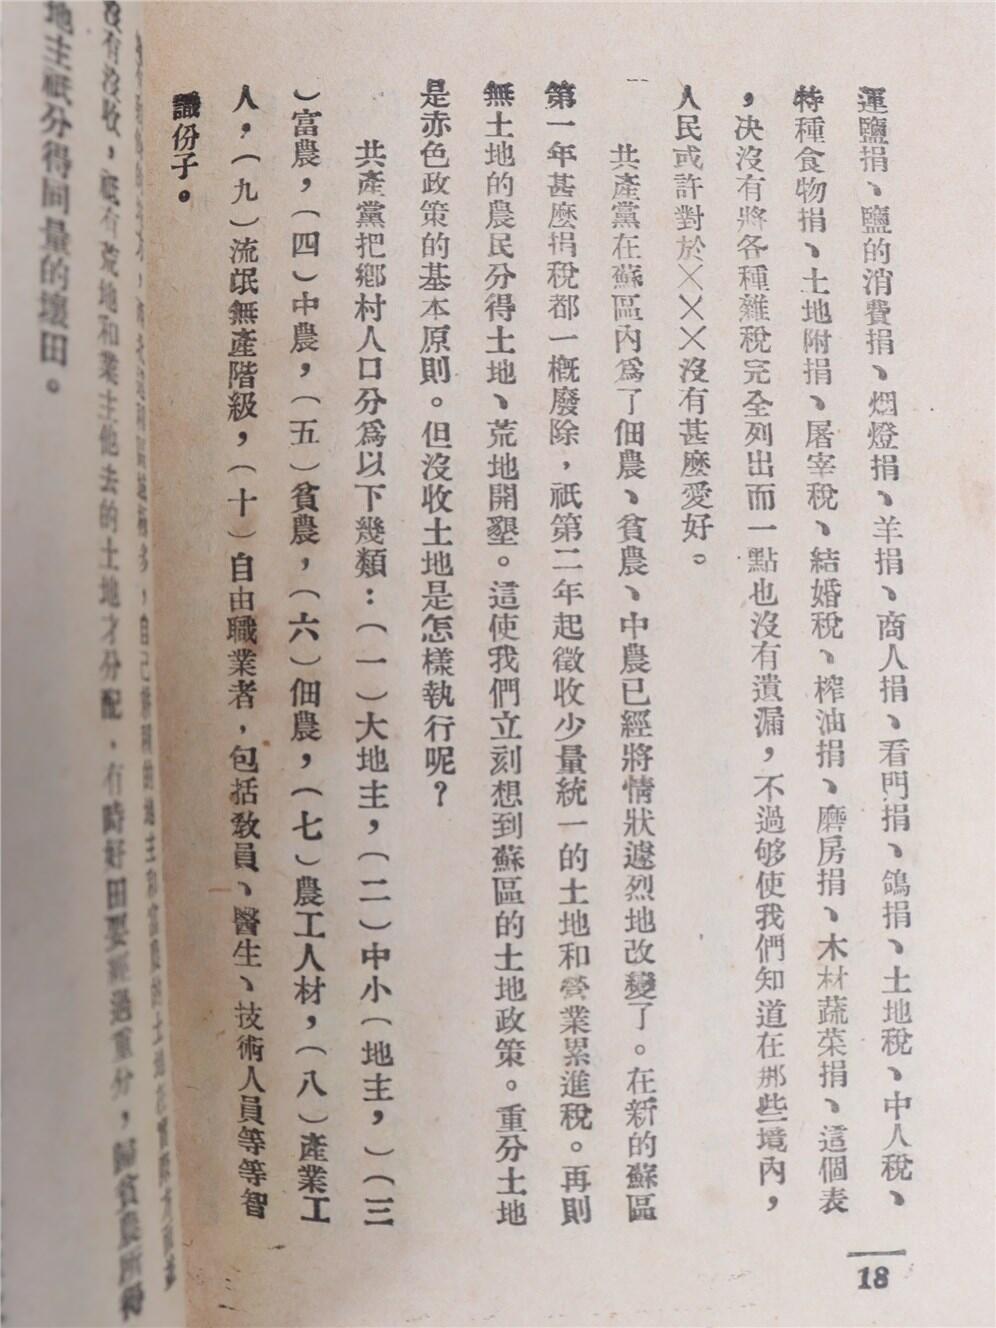 運鹽捐、鹽的消費捐、烟燈捐、羊捐、商人捐、看門捐、鴿捐、土地稅、中人稅、
特種食物捐、土地附捐、屠宰稅、結婚稅、榨油捐、磨房捐、木材蔬菜捐、這個表
，决沒有將各種雜稅完全列出而一點也沒有遺漏，不過够使我們知道在那些境內，
人民或許對於×××沒有甚麼愛好。
共產黨在蘇區內爲了佃農、貧農、中農已經將情狀遽烈地改變了。在新的蘇區
第一年甚麼捐稅都一槪廢除，祇第二年起徵收少量統一的土地和營業累進稅。再則
無土地的農民分得土地、荒地開墾。這使我們立刻想到蘇區的土地政策。重分土地
是赤色政策的基本原則。但沒收土地是怎樣執行呢？
共產黨把鄉村人口分爲以下幾類：（一）大地主，（二）中小（地主，）（三
）富農，（四）中農，（五）貧農，（六）佃農，（七）農工人材，（八）產業工
人，（九）流氓無產階級，（十）自由職業者，包括敎員、醫生、技術人員等等智
識份子。
18
沒有沒收，祇有荒地和業主他去的土地才分配，有時好田要經過重分，歸貧農所得
地主祇分得同量的壞田。